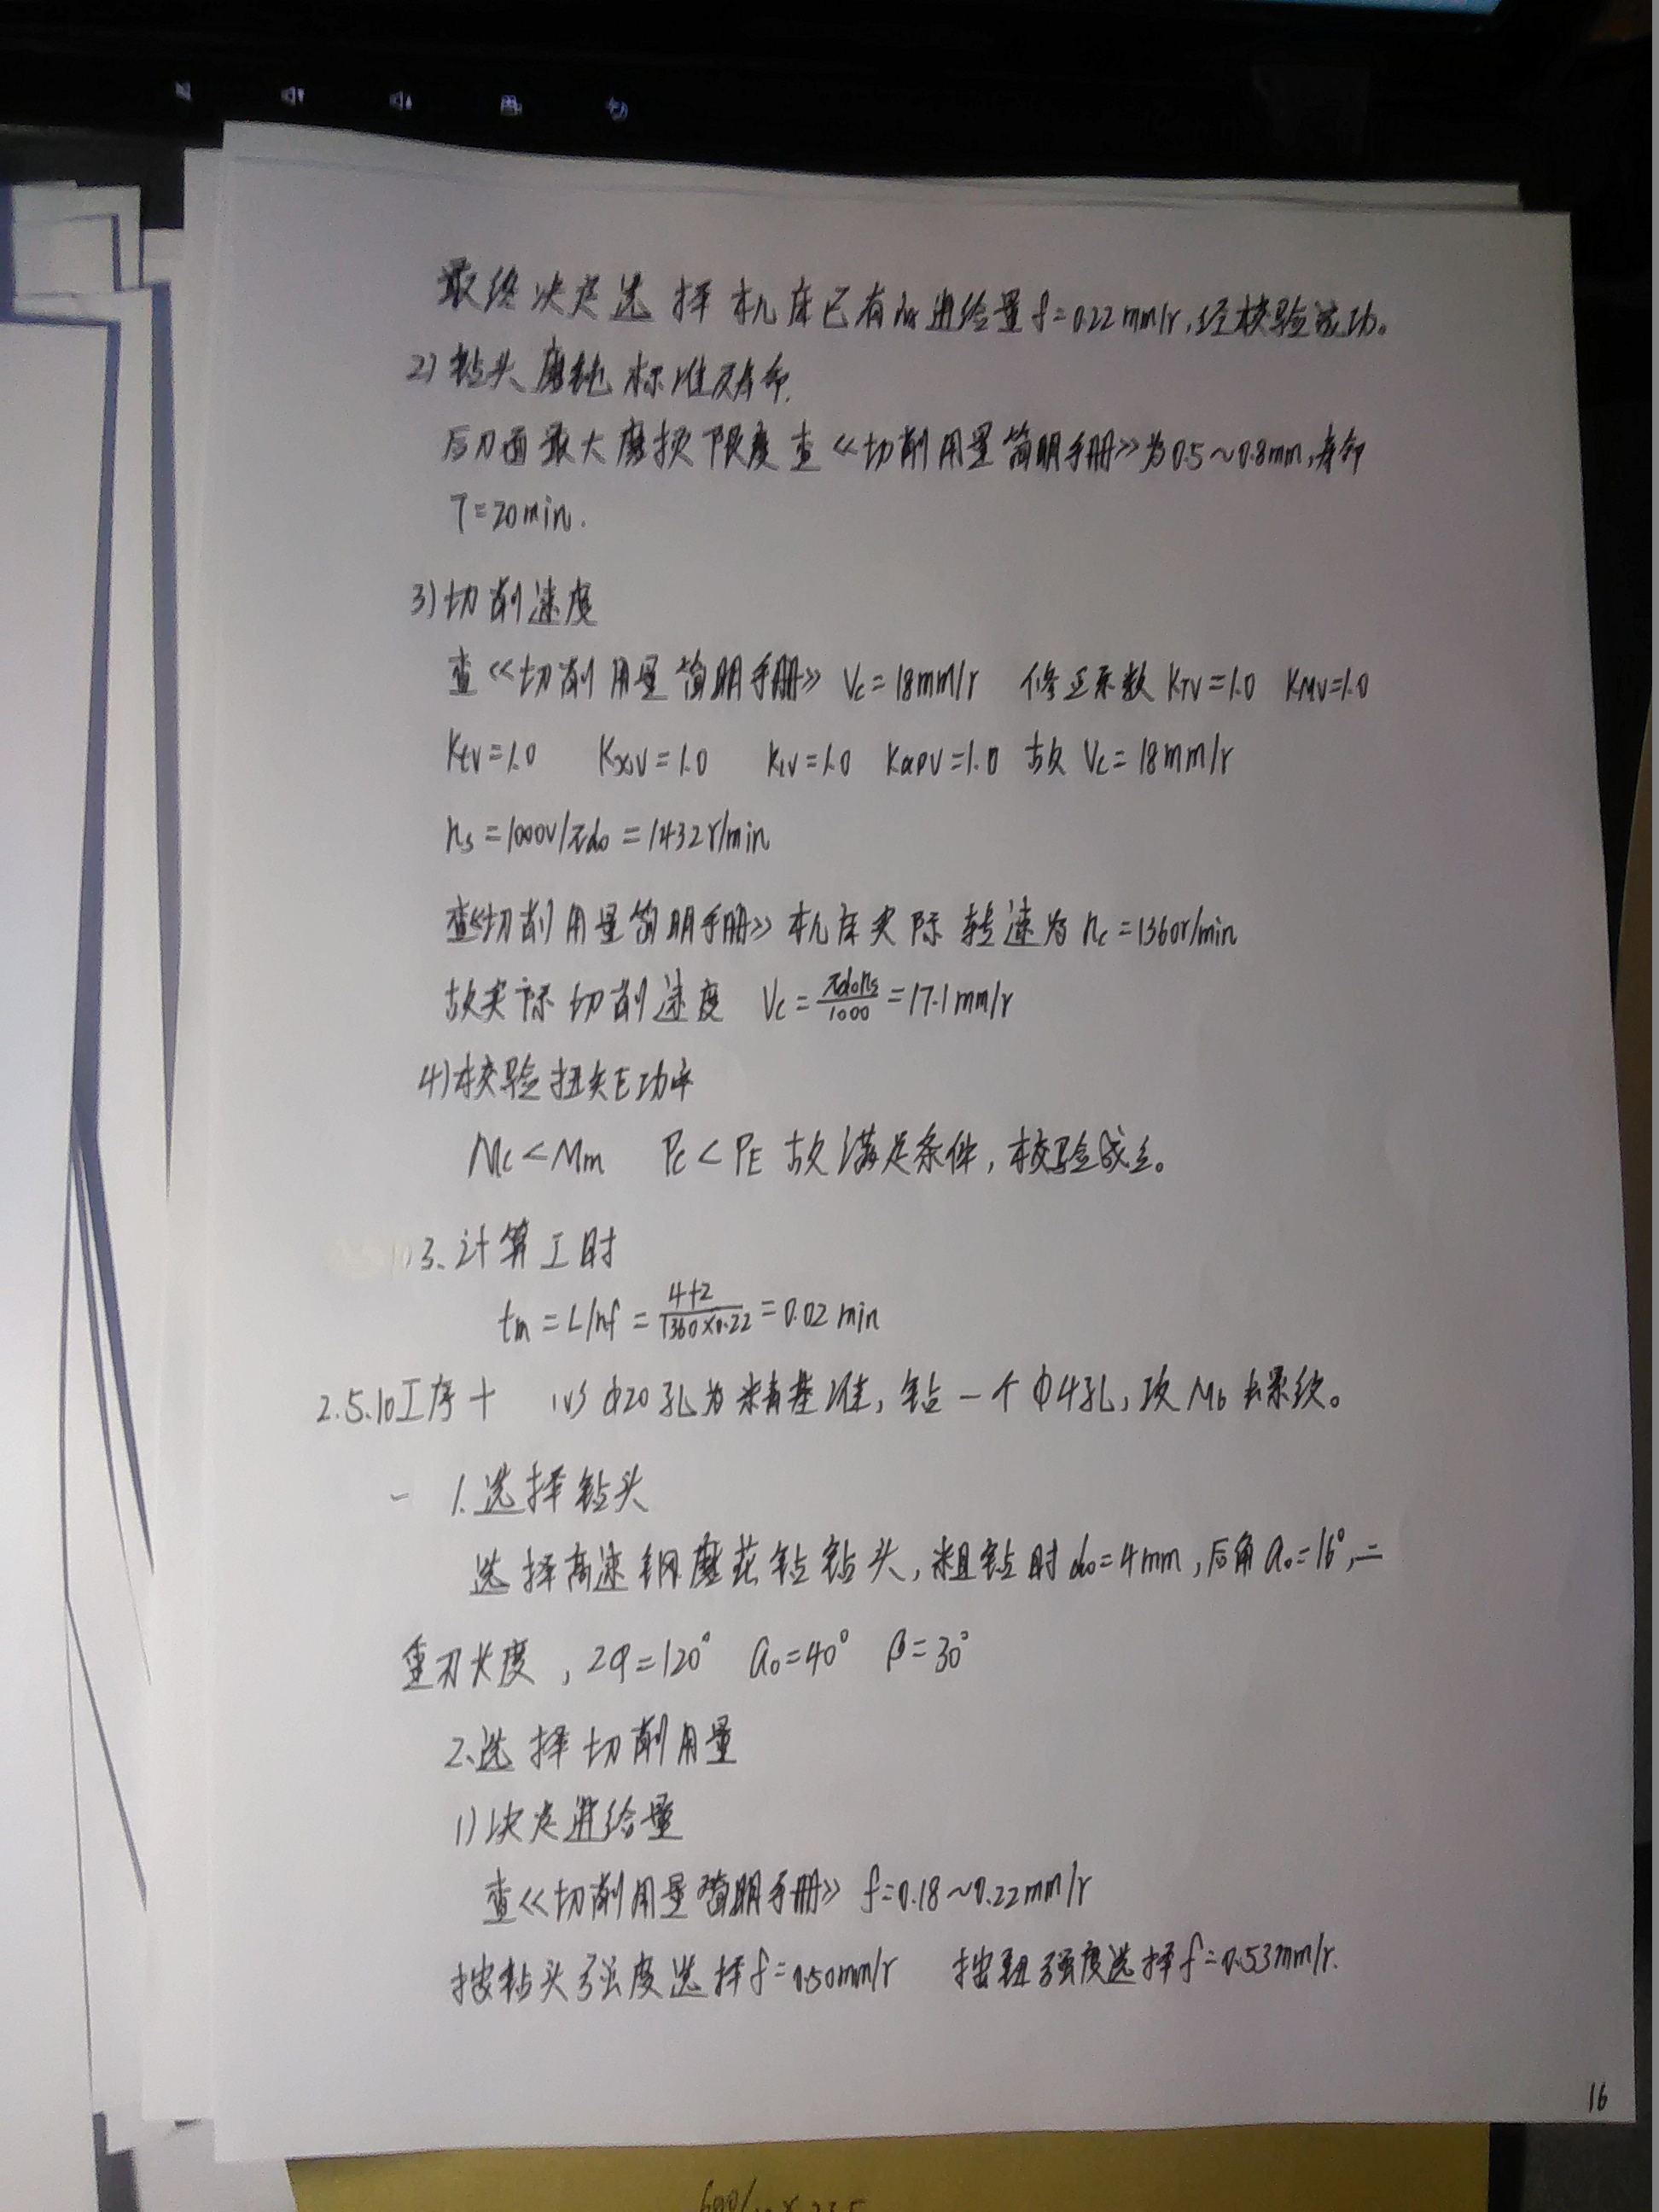 最终决定选择机床已有的进给量f=0.22mm/r,经校验成功。
2)钻头磨钝标准及寿命.
后刀面最大磨损限度查《切削用量简明手册》为0.5~0.8mm,寿命
T=20min.
3)切削速度
查《切削用量简明手册》Vc=18mm/r 修正系数KTV=1.0 KMV=1.0
Ktv=1.0 Kxv=1.0 K1v=1.0 Kapv=1.0 故Vc=18mm/r
ns=1000v/πdo=1432r/min
查《切削用量简明手册》机床实际转速为nc=1360r/min
故实际切削速度 Vc=πdons/1000=17.1mm/r
4)校验扭矩功率
Mc<Mm Pc<PE 故满足条件,校验成立。
3.计算工时
tm=L/nf=4+2/1360×0.22=0.02min
2.5.10工序十 以φ20孔为精基准,钻一个φ4孔,攻M6螺纹。
1.选择钻头
选择高速钢麻花钻钻头,粗钻时do=4mm,后角ao=16°,二
重刃长度,2φ=120° ao=40° β=30°
2.选择切削用量
1)决定进给量
查《切削用量简明手册》f=0.18~0.22mm/r
按钻头强度选择f=0.50mm/r 按钮强度选择f=0.53mm/r.
16